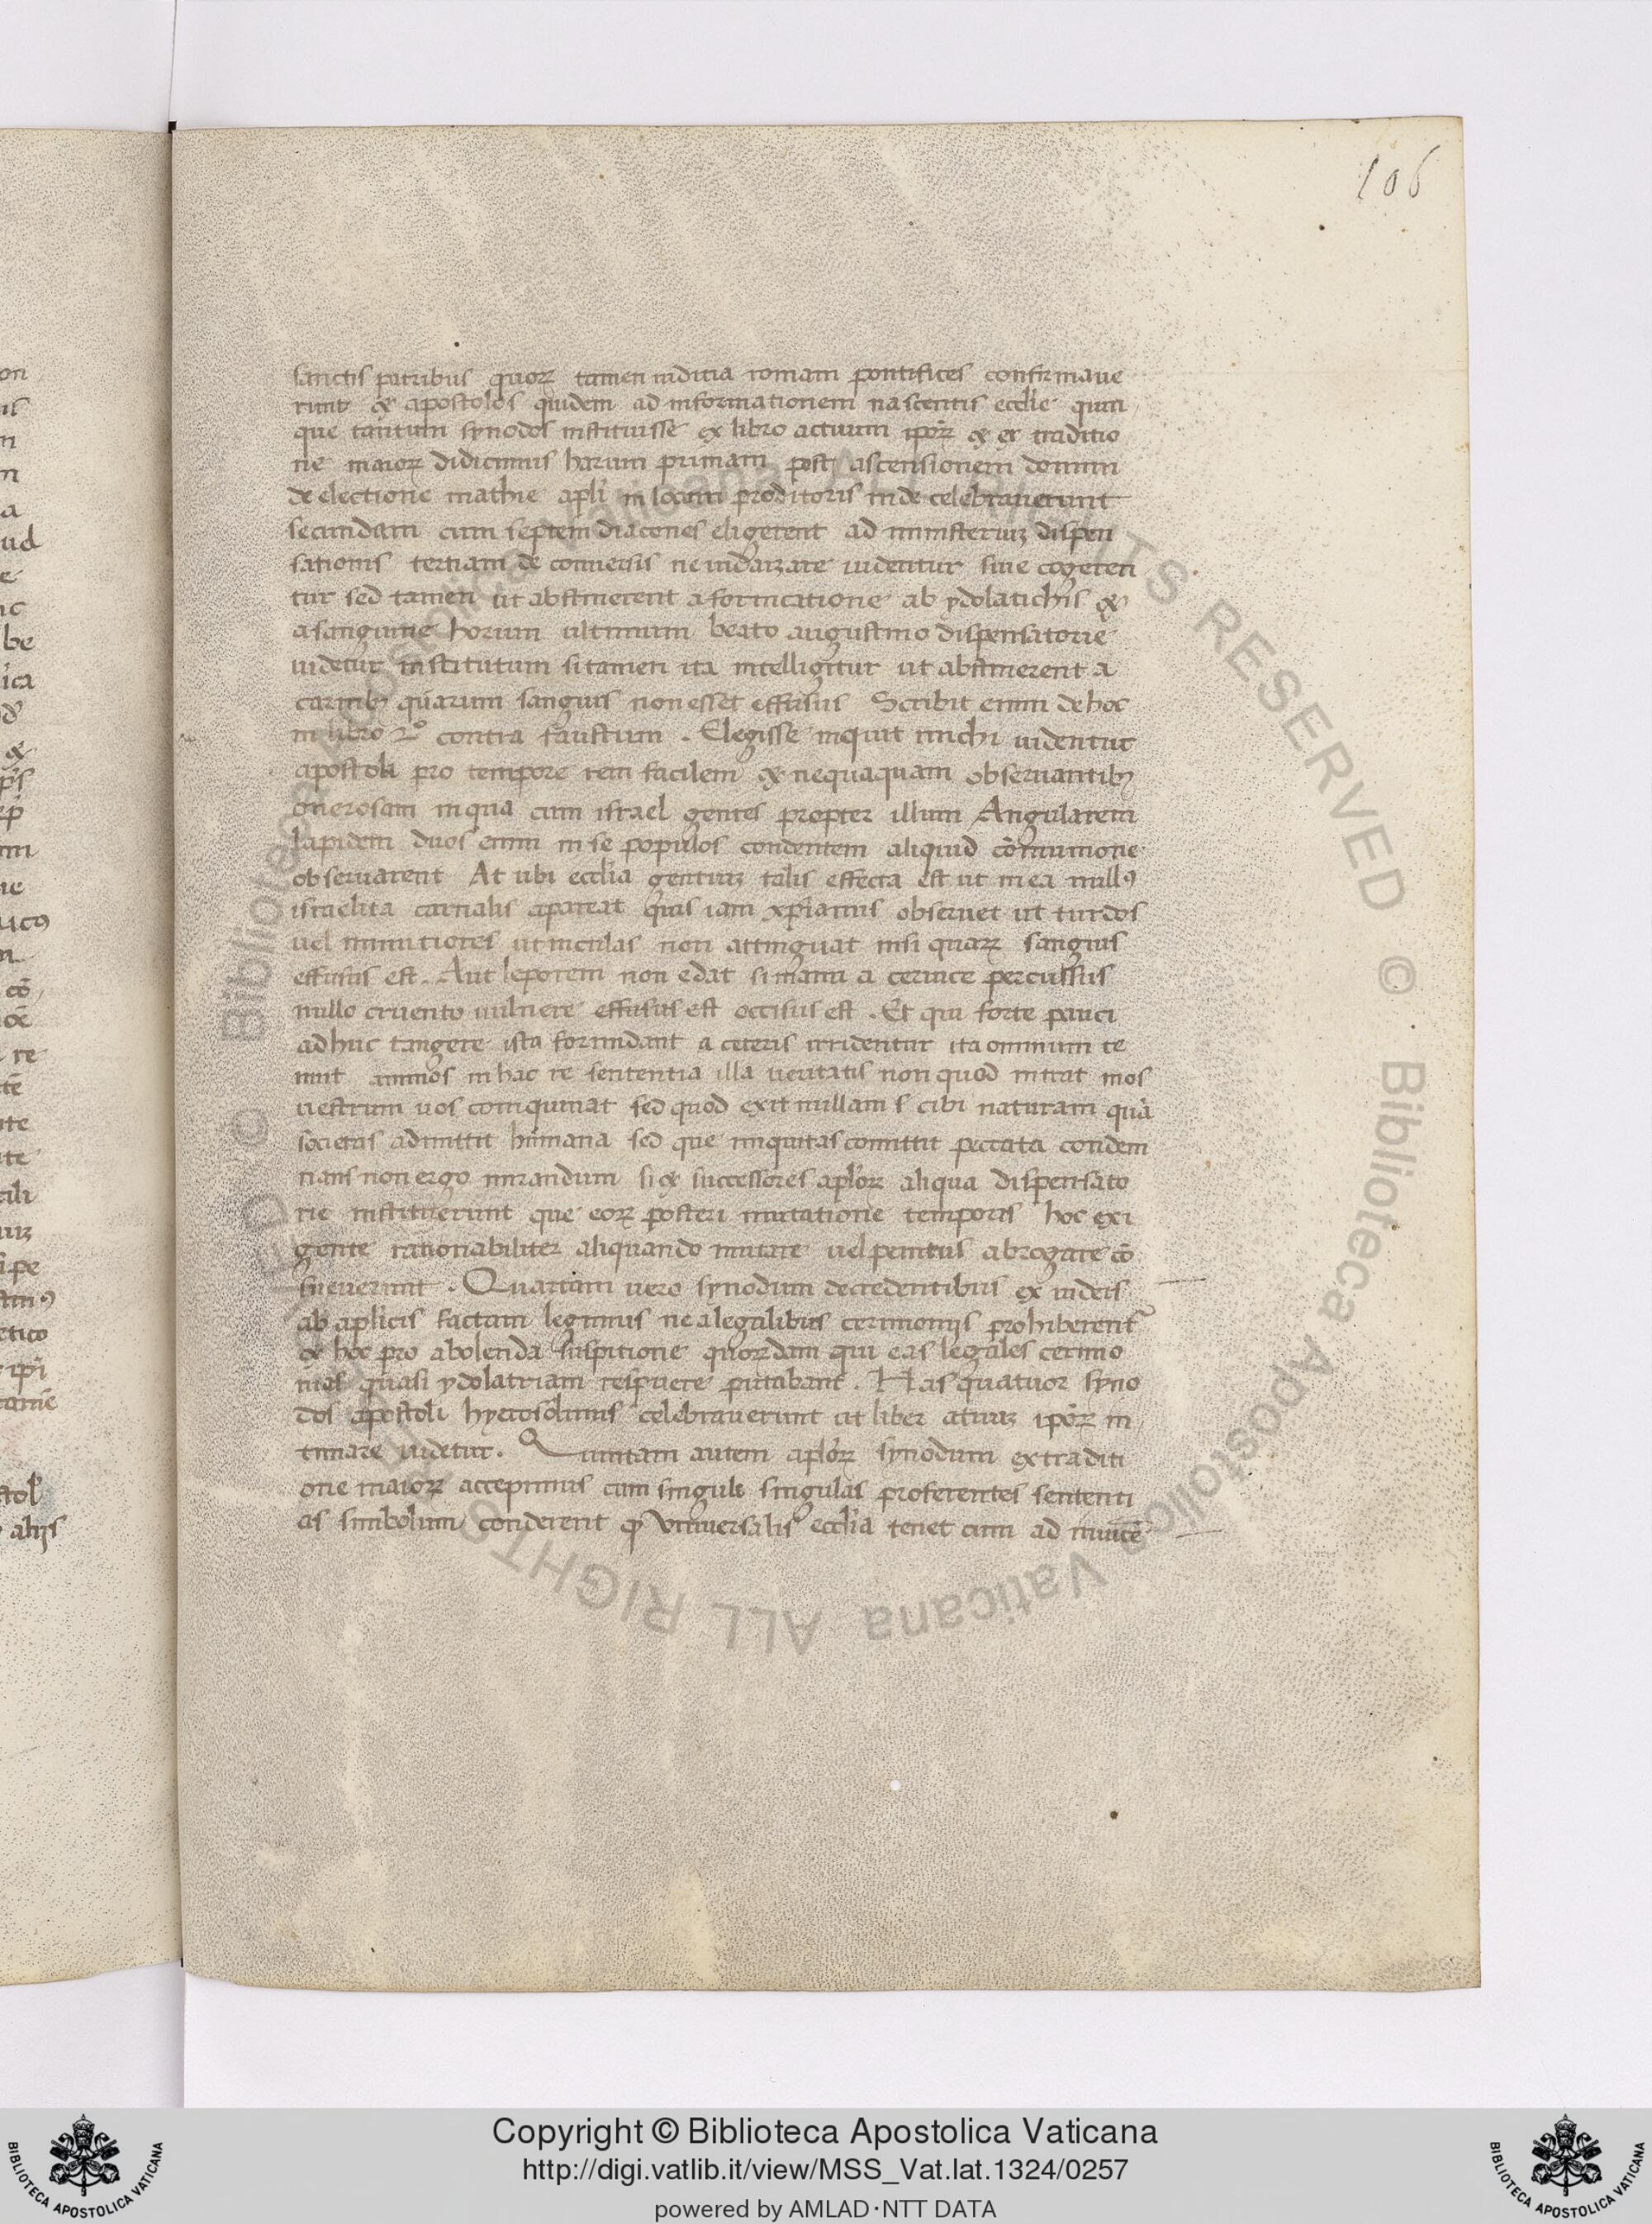 106
sanctis patribus quoꝝ tamen iudicia romani pontifices confirmaue
runt & apostolos quidem ad informationem nascentis eccl̄ie quin
que tantum synodos instituisse ex libro actuum ip̄oꝝ & ex traditio
ne maioꝝ didicimus harum primam post ascensionem domini
de electione mathie apl̄i in locum proditoris iude celebrauerunt
secundam cum septem diacones eligerent ad ministeriuꝫ dispen
sationis tertiam de conuersis ne iudaizare uidentur siue cogeren
tur sed tamen ut abstinerent a fornicatione ab ydolatichis &
a sanguine horum ultimum beato augustino dispensatorie
uidetur institutum si tamen ita intelligitur ut abstinerent a
carnibꝫ quarum sanguis non esset effusus Scribit enim de hoc
in libro 2º contra faustum . Elegisse inquit michi uidentur
apostoli pro tempore rem facilem & nequaquam obseruantibꝫ
onerosam in qua cum israel gentes propter illum Angularem
lapidem duos enim in se populos condentem aliquid cōmunione
obseruarent At ubi eccl̄ia gentiuꝫ talis effecta est ut in ea nullꝰ
israelita carnalis apareat quis iam xp̄ianus obseruet ut turdos
uel minutiores uiticulas non attinguat nisi quaꝝ sanguis
effusus est . Aut leporem non edat si manu a ceruice percussus
nullo cruento uulnere effusus est occisus est . Et qui forte pauci
adhuc tangere ista formidant a ceteris irridentur ita omnium te
nuit animos in hac re sententia illa ueritatis non quod intrat in os
uestrum uos coinquinat sed quod exit nullam s cibi naturam quā
societas admittit humana sed que iniquitas comittit peccata condem
nans non ergo mirandum si & successores apl̄oꝝ aliqua dispensato
rie instituerunt que eoꝝ posteri mutatione temporis hoc exi
gente rationabiliter aliquando mutare uel penitus abrogare cō
sueuerunt . Quartam uero synodum decredentibus ex iudeis
ab apl̄icis factam legimus ne a legalibus cerimonijs prohiberent᷑
& hoc pro abolenda suspitione quoꝝdam qui eas legales cerimo
nias quasi ydolatriam respuere putabant . Has quatuor syno
dos apostoli hyerosolimis celebrauerunt ut liber atuuꝫ ip̄oꝝ in
timare uidetur . Quintam autem apl̄oꝝ synodum ex traditi
one maioꝝ accepimus cum singuli singulas proferentes sententi
as simbolum conderent ꝙ vniuersalis eccl̄ia tenet cum ad inuicē
Copyright © Biblioteca Apostolica Vaticana
http://digi.vatlib.it/view/MSS_Vat.lat.1324/0257
powered by AMLAD·NTT DATA
BIBLIOTECA APOSTOLICA VATICANA
BIBLIOTECA APOSTOLICA VATICANA